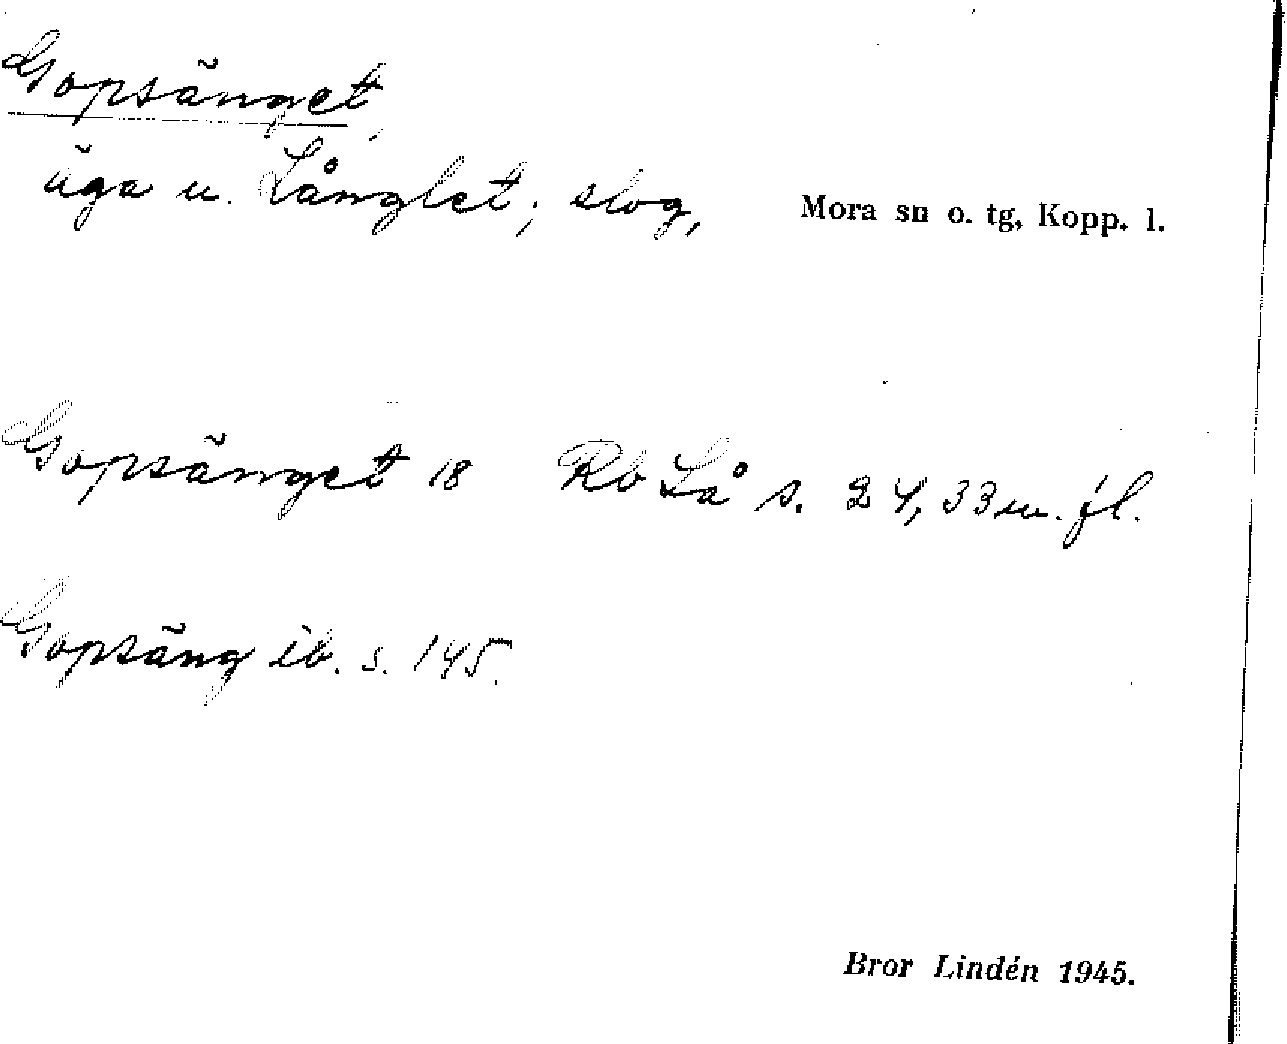 Gopsänget,
äga u. Långlet; slog,
Mora sn o. tg, Kopp. l.
Gopsänget 18 Rb Lå s. 24, 33 m. fl.
Gopsäng ib. s. 145.
Bror Lindén 1945.